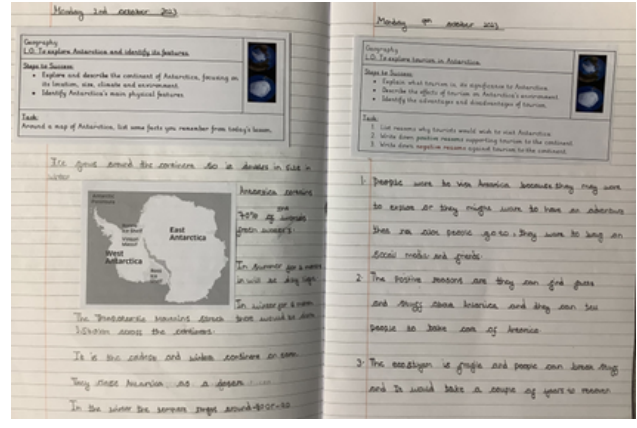 Monday 2nd october 2023
Geography
L.O. To explore Antarctica and identify its features
Steps to Success:
Explore and describe the continent of Antarctica, focusing on
its location, size, climate and environment.
Identify Antarctica's main physical features
Task:
Around a map of Antarctica, list some facts you remember from today's lesson.
Ice grows around the continent so it doubles in size in
winter
Antarctic
Peninsula
Ronne
Ice Shelf
Vinson
Massif
East
Antarctica
West
Antarctica
Ross
Ice
Shelf
Antarctica contains
70% of the
fresh
In summer for 6 month
it will be day light
In winter for 6 month
there would be dark
The Transantarctic Mountains stretch
across the continent
It is the coldest and continent on
They Antarctica as a desert
In the winter the around -60 or -80
Monday 9th october 2023
Geography
L.O. To explore tourism in Antarctica
Steps to Success:
Explain what tourism is, its significance to Antarctica
Describe the effects of tourism on Antarctica's environment.
Identify the advantages and disadvantages of tourism
Task:
1. List reasons why tourists would wish to visit Antarctica
2. Write down positive reasons supporting tourism to the continent.
3. Write down negative reasons against tourism to the continent.
1. People want to visit because they may want
to explore or they might want to have an
that not people go to, they want to on
social media and friends.
2. The Positive reasons are they can find facts
and stuff about and they can tell
people to take care of
3. The is fragile and people can break stuff
and It would take a couple of years to